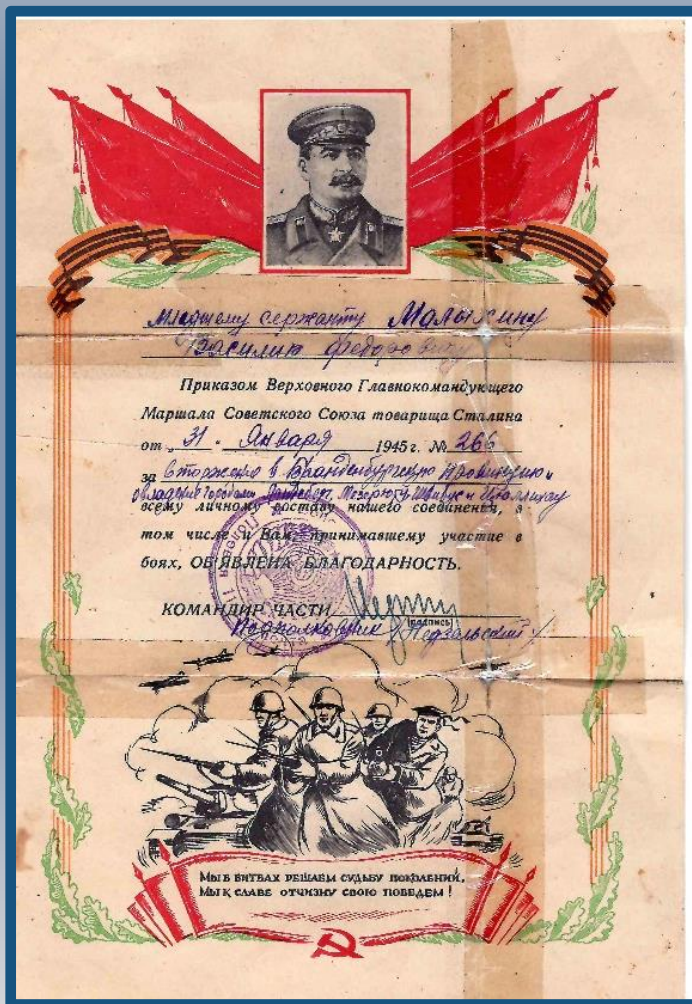 младшему сержанту Малыхину
Василию Федоровичу
Приказом Верховного Главнокомандующего
Маршала Советского Союза товарища Сталина
от „31“ Января 1945 г. № 266
за вторжение в Бранденбургскую провинцию и
овладение городами Ландсберг, Мезеритц, Швибус и Цюллихау
всему личному составу нашего соединения, в
том числе и Вам, принимавшему участие в
боях, ОБ'ЯВЛЕНА БЛАГОДАРНОСТЬ.
КОМАНДИР ЧАСТИ
(подпись)
Подполковник
МЫ В БИТВАХ РЕШАЕМ СУДЬБУ ПОКОЛЕНИЙ,
МЫ К СЛАВЕ ОТЧИЗНУ СВОЮ ПОВЕДЕМ!